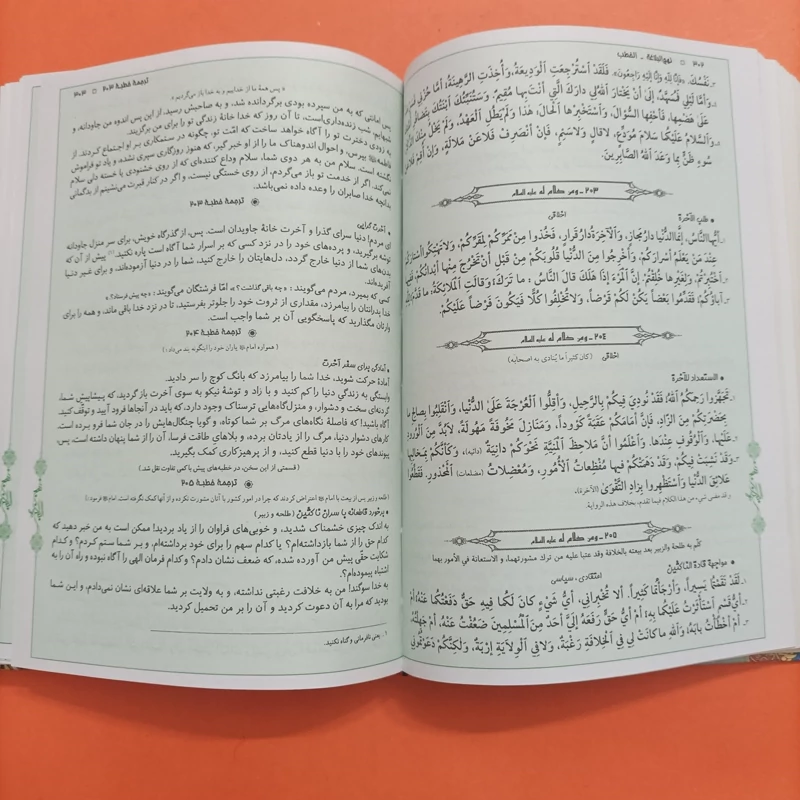 ٣٠٢ □ نهج البلاغة - الخطب
نَفْسُكَ. «فَإِنَّا لِلّٰهِ وَإِنَّا إِلَيْهِ رَاجِعُونَ». فَلَقَدْ اُسْتُرْجِعَتِ الْوَدِيعَةُ، وَأُخِذَتِ الرَّهِينَةُ، أَمَّا حُزْنِي
وَأَمَّا لَيْلِي فَمُسَهَّدٌ، إِلَىٰ أَنْ يَخْتَارَ اللّٰهُ لِي دَارَكَ الَّتِي أَنْتَ بِهَا مُقِيمٌ. وَسَتُنَبِّئُكَ ابْنَتُكَ
عَلَىٰ هَضْمِهَا، فَأَحْفِهَا السُّؤَالَ، وَاسْتَخْبِرْهَا الْحَالَ، هٰذَا وَلَمْ يَطُلِ الْعَهْدُ، وَلَمْ يَخْلُ مِنْكَ
وَالسَّلَامُ عَلَيْكُمَا سَلَامَ مُوَدِّعٍ، لَا قَالٍ وَلَا سَئِمٍ، فَإِنْ أَنْصَرِفْ فَلَا عَنْ مَلَالَةٍ، وَإِنْ أُقِمْ فَلَا
سُوءِ ظَنٍّ بِمَا وَعَدَ اللّٰهُ الصَّابِرِينَ.
٢٠٣ - ومن كلام له عليه السلام
اخلاقی
• طلب الآخرة
أَيُّهَا النَّاسُ، إِنَّمَا الدُّنْيَا دَارُ مَجَازٍ، وَالْآخِرَةُ دَارُ قَرَارٍ، فَخُذُوا مِنْ مَمَرِّكُمْ لِمَقَرِّكُمْ، وَلَا تَهْتِكُوا أَسْتَارَكُمْ
عِنْدَ مَنْ يَعْلَمُ أَسْرَارَكُمْ، وَأَخْرِجُوا مِنَ الدُّنْيَا قُلُوبَكُمْ مِنْ قَبْلِ أَنْ تَخْرُجَ مِنْهَا أَبْدَانُكُمْ،
اخْتُبِرْتُمْ، وَلِغَيْرِهَا خُلِقْتُمْ. إِنَّ الْمَرْءَ إِذَا هَلَكَ قَالَ النَّاسُ: مَا تَرَكَ؟ وَقَالَتِ الْمَلَائِكَةُ: مَا قَدَّمَ؟
آبَاؤُكُمْ! فَقَدِّمُوا بَعْضاً يَكُنْ لَكُمْ قَرْضاً، وَلَا تُخْلِفُوا كُلًّا فَيَكُونَ فَرْضاً عَلَيْكُمْ.
٢٠٤ - ومن كلام له عليه السلام
اخلاقی (كان كثيراً ما يُنادی به أصحابه)
• الاستعداد للآخرة
تَجَهَّزُوا رَحِمَكُمُ اللّٰهُ! فَقَدْ نُودِيَ فِيكُمْ بِالرَّحِيلِ، وَأَقِلُّوا الْعُرْجَةَ عَلَىٰ الدُّنْيَا، وَانْقَلِبُوا بِصَالِحِ مَا
بِحَضْرَتِكُمْ مِنَ الزَّادِ، فَإِنَّ أَمَامَكُمْ عَقَبَةً كَؤُوداً، وَمَنَازِلَ مَخُوفَةً مَهُولَةً، لَابُدَّ مِنَ الْوُرُودِ
عَلَيْهَا، وَالْوُقُوفِ عِنْدَهَا. وَاعْلَمُوا أَنَّ مَلَاحِظَ الْمَنِيَّةِ نَحْوَكُمْ دَانِيَةٌ (دائبة)، وَكَأَنَّكُمْ بِمَخَالِبِهَا
وَقَدْ نَشِبَتْ فِيكُمْ، وَقَدْ دَهَمَتْكُمْ فِيهَا مُفْظِعَاتُ الْأُمُورِ، وَمُعْضِلَاتُ (مضلعات) الْمَحْذُورِ. فَقَطِّعُوا
عَلَائِقَ الدُّنْيَا وَاسْتَظْهِرُوا بِزَادِ التَّقْوَىٰ (الآخرة).
وقد مضى شيء من هذا الكلام فيما تقدم، بخلاف هذه الرواية.
٢٠٥ - ومن كلام له عليه السلام
كلّم به طلحة والزبير بعد بيعته بالخلافة وقد عتبا عليه من ترك مشورتهما، و الاستعانة في الأمور بهما
اعتقادی، سیاسی
• مواجهة قادة الناكثين
لَقَدْ نَقَمْتُمَا يَسِيراً، وَأَرْجَأْتُمَا كَثِيراً. أَلَا تُخْبِرَانِي، أَيُّ شَيْءٍ كَانَ لَكُمَا فِيهِ حَقٌّ دَفَعْتُكُمَا عَنْهُ؟ أَمْ
أَيُّ قَسْمٍ اسْتَأْثَرْتُ عَلَيْكُمَا بِهِ؟ أَمْ أَيُّ حَقٍّ رَفَعَهُ إِلَيَّ أَحَدٌ مِنَ الْمُسْلِمِينَ ضَعُفْتُ عَنْهُ، أَمْ جَهِلْتُهُ،
أَمْ أَخْطَأْتُ بَابَهُ! وَاللّٰهِ مَا كَانَتْ لِي فِي الْخِلَافَةِ رَغْبَةٌ، وَلَا فِي الْوِلَايَةِ إِرْبَةٌ، وَلٰكِنَّكُمْ دَعَوْتُمُونِي
ترجمهٔ خطبهٔ ٢٠٣ □ ٣٠٣
« پس همهٔ ما از خداییم و به خدا باز می‌گردیم.»
پس امانتی که به من سپرده بودی برگردانده شد، و به صاحبش رسید، از این پس اندوه من جاودانه، و
شبهایم، شب زنده‌داری‌است، تا آن روز که خدا خانهٔ زندگی تو را برای من برگزیند.
به زودی دخترت تو را آگاه خواهد ساخت که امّت تو، چگونه در ستمکاری بر او اجتماع کردند. از
فاطمه بپرس، و احوال اندوهناک ما را از او خبر گیر، که هنوز روزگاری سپری نشده، و یاد تو فراموش
نگشته است. سلام من به هر دوی شما، سلام وداع کننده‌ای که از روی خشنودی یا خسته دلی سلام
نمی‌کند. اگر از خدمت تو باز می‌گردم، از روی خستگی نیست، و اگر در کنار قبرت می‌نشینم از بدگمانی
بدانچه خدا صابران را وعده داده نمی‌باشد.
ترجمهٔ خطبهٔ ٢٠٣
• آخرت گرایی
ای مردم! دنیا سرای گذرا و آخرت خانهٔ جاویدان است. پس، از گذرگاه خویش، برای سر منزل جاودانه
توشه برگیرید، و پرده‌های خود را در نزد کسی که بر اسرار شما آگاه است پاره نکنید.(١) پیش از آن که
بدن‌های شما از دنیا خارج گردد، دل‌هایتان را خارج کنید، شما را در دنیا آزموده‌اند، و برای غیر دنیا
آفریده‌اند.
کسی که بمیرد، مردم می‌گویند: «چه باقی گذاشت؟» امّا فرشتگان می‌گویند: «چه پیش فرستاد؟»
خدا پدرانتان را بیامرزد، مقداری از ثروت خود را جلوتر بفرستید، تا در نزد خدا باقی ماند، و همه را برای
وارثان مگذارید که پاسخگویی آن بر شما واجب است.
ترجمهٔ خطبهٔ ٢٠٤
( همواره امام یاران خود را اینگونه پند می‌داد:)
• آمادگی برای سفر آخرت
آمادهٔ حرکت شوید، خدا شما را بیامرزد که بانگ کوچ را سر دادید.
وابستگی به زندگی دنیا را کم کنید، و با زاد و توشهٔ نیکو به سوی آخرت باز گردید، که پیشاپیش شما،
گردنه‌ای سخت و دشوار، و منزلگاه‌هایی ترسناک وجود دارد، که باید در آنجاها فرود آیید و توقّف کنید.
آگاه باشید! که فاصلهٔ نگاه‌های مرگ بر شما کوتاه، و گویا چنگال‌هایش را در جان شما فرو برده است.
کارهای دشوار دنیا، مرگ را از یادتان برده، و بلاهای طاقت فرسا، آن را از شما پنهان داشته است، پس،
پیوندهای خود را با دنیا قطع کنید، و از پرهیزکاری کمک بگیرید.
( قسمتی از این سخن، در خطبه‌های پیش با کمی تفاوت نقل شد.)
ترجمهٔ خطبهٔ ٢٠٥
(طلحه و زبیر پس از بیعت با امام اعتراض کردند که چرا در امور کشور با آنان مشورت نکرده و از آنها کمک نگرفته است. امام فرمود:)
• برخورد قاطعانه با سران ناکثین ( طلحه و زبیر )
به اندک چیزی خشمناک شدید، و خوبی‌های فراوان را از یاد بردید! ممکن است به من خبر دهید که
کدام حق را از شما بازداشته‌ام؟ یا کدام سهم را برای خود برداشته‌ام، و بر شما ستم کردم؟ و کدام
شکایت حقّی پیش من آورده شده، که ضعف نشان دادم؟ و کدام فرمان الهی را آگاه نبوده و راه آن را به
اشتباه پیموده‌ام؟.
به خدا سوگند! من به خلافت رغبتی نداشته، و به ولایت بر شما علاقه‌ای نشان نمی‌دادم، و این شما
بودید که مرا به آن دعوت کردید و آن را بر من تحمیل کردید.
١ . یعنی نافرمانی و گناه نکنید.